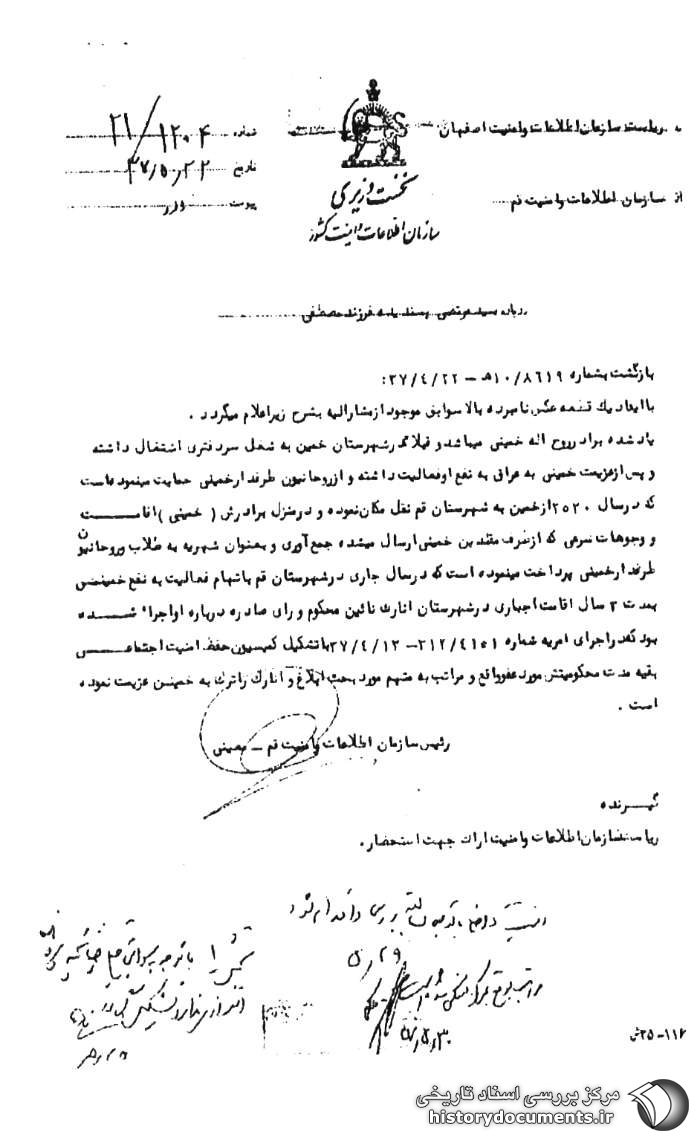 به ریاست سازمان اطلاعات و امنیت اصفهان
از سازمان اطلاعات و امنیت قم
نخست وزیری
سازمان اطلاعات و امنیت کشور
شماره ۲۱/۱۲۰۴
تاریخ ۳۷/۵/۲۲
پیوست دارد
درباره سید مرتضی پسندیده فرزند مصطفی
بازگشت بشماره ۱۰/۸۶۱۹ه‍ – ۳۷/۴/۲۲:
با ایفاد یک قطعه عکس نامبرده بالا سوابق موجود از مشارالیه بشرح زیر اعلام میگردد.
یاد شده برادر روح اله خمینی میباشد و قبلا در شهرستان خمین به شغل سردفتری اشتغال داشته
و پس از عزیمت خمینی به عراق به نفع او فعالیت داشته و از روحانیون طرفدار خمینی حمایت مینموده است
که در سال ۲۵۲۰ از خمین به شهرستان قم نقل مکان نموده و در منزل برادرش (خمینی) اقامت
و وجوهات شرعی که از طرف مقلدین خمینی ارسال میشده جمع آوری و بعنوان شهریه به طلاب و روحانیون
طرفدار خمینی پرداخت مینموده است که در سال جاری در شهرستان قم باتهام فعالیت به نفع خمینی
بمدت ۳ سال اقامت اجباری در شهرستان انارک نائین محکوم و رای صادره درباره او اجراء شده
بود که در اجرای امریه شماره ۳۱۲/۴۱۵۱ – ۳۷/۴/۱۲ با تشکیل کمیسیون حفظ امنیت اجتماعی
بقیه مدت محکومیتش مورد عفو واقع و مراتب به متهم مورد بحث ابلاغ و انارک را ترک به خمین عزیمت نموده
است.
رئیس سازمان اطلاعات و امنیت قم – معینی
گیرنده
ریاست سازمان اطلاعات و امنیت اراک جهت استحضار.
بررسی و اقدام شود
۵/۲۹
۳۵–۱۱۶ش
مرکز بررسی اسناد تاریخی
historydocuments.ir